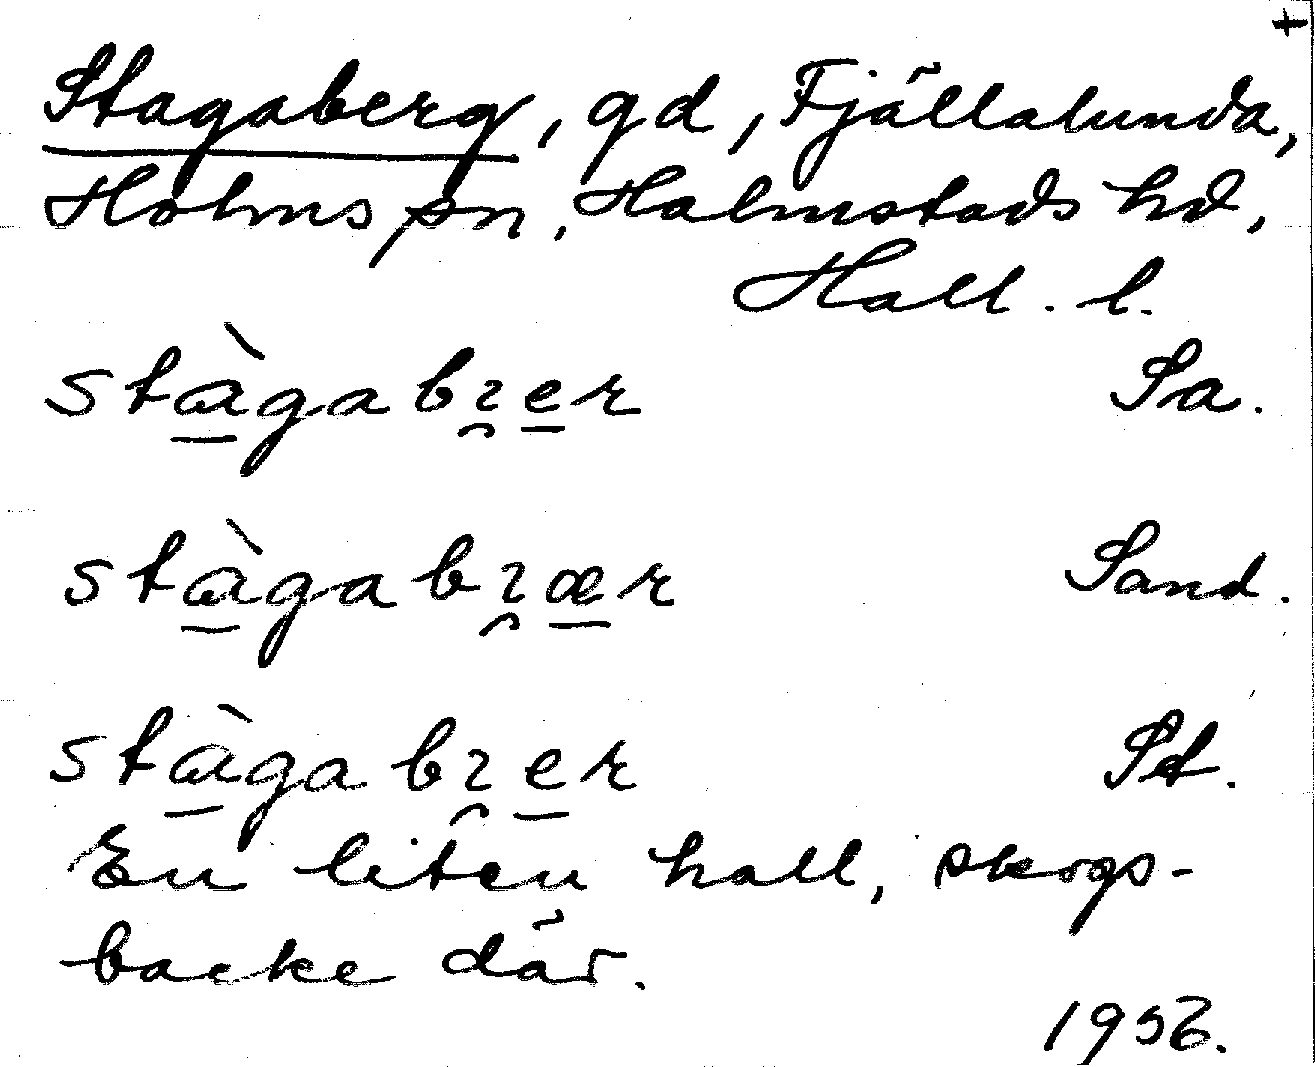 +
Stagaberg, gd, Fjällalunda,
Holms sn, Halmstads hd,
Hall. l.
stàgabɿer Sa.
stàgabɿær Sand.
stàgabɿer St.
En liten hall, skogs-
backe där.
1956.